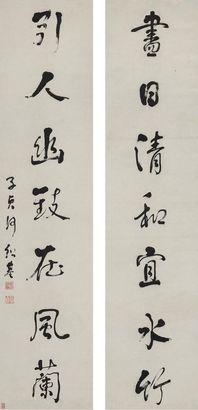 晝日清和宜水竹
引人幽致在風蘭
子貞何紹基